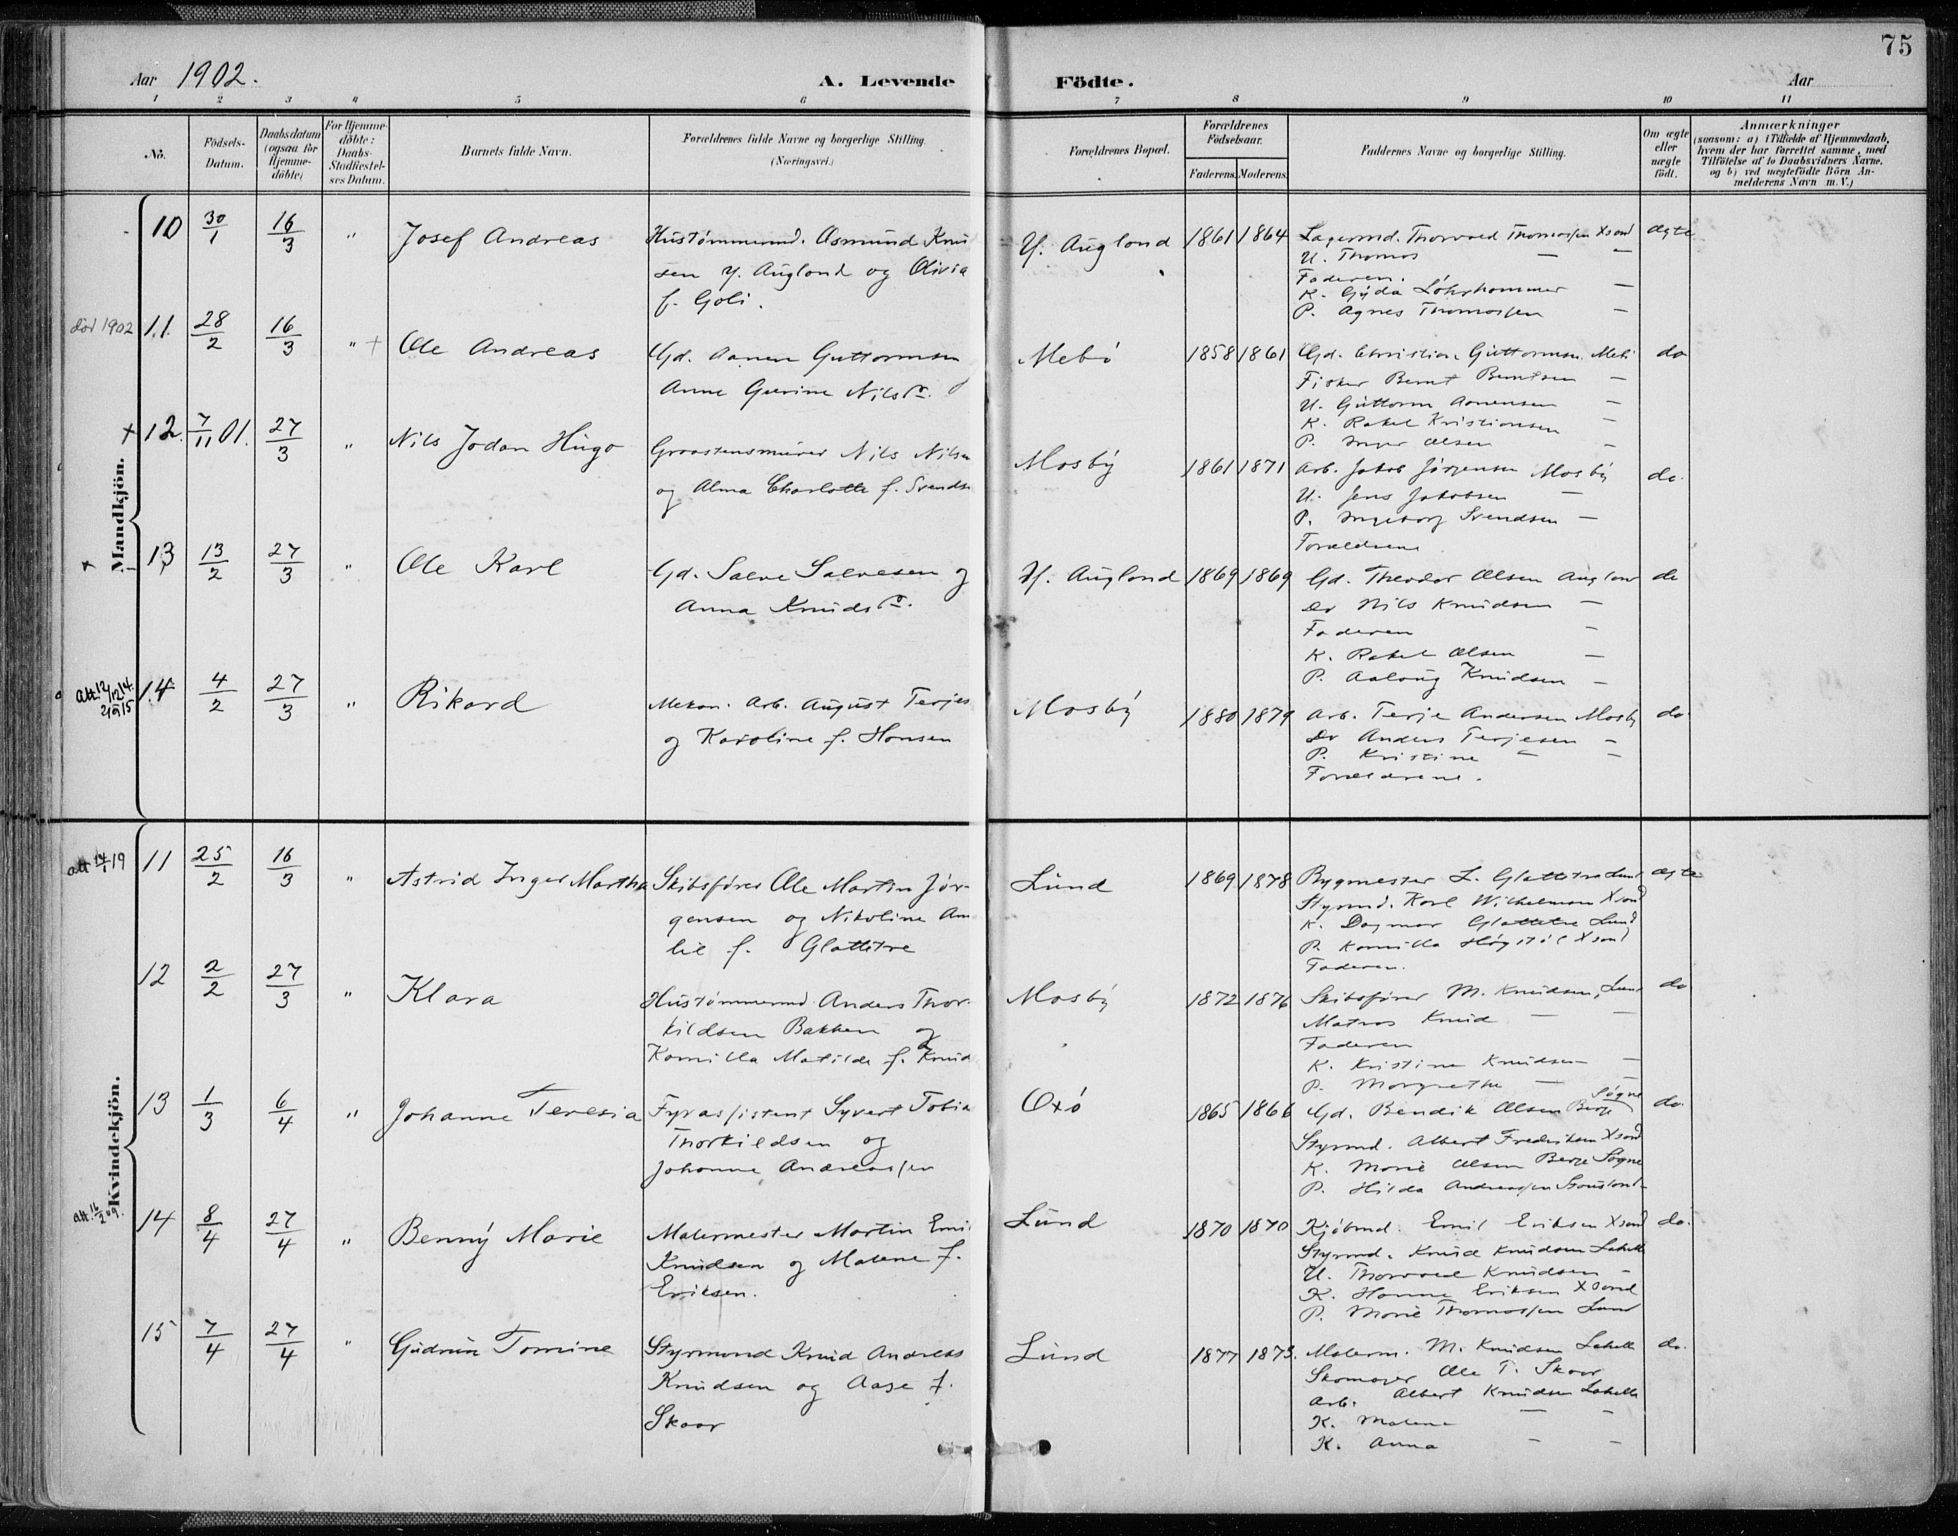 75
Aar 1902.
A. Levende Födte.
Aar
1 2 3 4 5 6 7 8 9 10 11
No.
Födsels-
Datum.
Daabsdatum
(ogsaa for
Hjemme-
döbte)
For Hjemme-
döbte:
Daabs-
Stadfæstel-
ses Datum.
Barnets fulde Navn.
Forældrenes fulde Navne og borgerlige Stilling.
(Næringsvei.)
Forældrenes Bopæl.
Forældrenes
Födselsaar.
Faderens. Moderens.
Faddernes Navne og borgerlige Stilling.
Om ægte
eller
uægte
födt.
Anmærkninger
(saasom: a) i Tilfælde af Hjemmedaab,
hvem der har forrettet samme, med
Tilföielse af to Daabsvidners Navne.
og b) ved uægtefödte Börn An-
melderens Navn m. V.)
Mandkjön.
10 30/1 16/3 " Josef Andreas
Hustømmermd. Asmund Knu
sen Y. Augland og Olivia
f. Goli.
Y. Augland 1861 1864
Lagermd. Thorvald Thomassen Xsand
U. Thomas —
Faderen.
K. Gyda —
P. Agnes Thomassen —
ægte
død 1902 11. 28/2 16/3 " + Ole Andreas
Gd. Aanen Guttormsen
Anne Gurine Nilsdr.
Mebø 1858 1861
Gd. Christian Guttormsen. Mebø
Fisker Bernt Berntsen —
U. Guttorm Aanensen —
K. Rakel Kristiansen —
P. Inger Olsen —
do
+ 12. 7/11 01. 27/3 " Nils Jodan Hugo
Graastensmurer Nils Nilsen
og Alma Charlotte f. Svends
Mosby 1861 1871
Arb. Jakob Jørgensen Mosby
U. Jens Jakobsen —
P. Ingeborg Svendsen —
Forældrene
do.
+ 13 13/2 27/3 " Ole Karl
Gd. Salve Salvesen og
Anna Knudsdr.
Y. Augland 1869 1869
Gd. Theodor Olsen Augland
Do Nils Knudsen —
Faderen —
K. Rakel Olsen —
P. Aalaug Knudsen —
do
att 12/12 14.
2/9 15
14 4/2 27/3 " Rikard
Mekan. Arb. August Terjes
og Karoline f. Hansen
Mosby 1880 1879
Arb. Terje Andersen Mosby
Do Anders Terjesen —
P. Kristine — —
Forældrene.
do.
Kvindekjön.
att 14/1 19 11 25/2 16/3 " Astrid Inger Martha
Skibsfører Ole Martin Jør-
gensen og Nikoline Am
lie f. Glattetre
Lund 1869 1878
Bygmester L. Glattetre Lund
Styrmd. Karl Wilhelmsen Xsand
K. Dagmar Glattetre Lund
P. Kamilla Høgstøl Xsand
Faderen.
ægte
12 2/2 27/3 " Klara
Hustømmermd Anders Thor-
kildsen Bakken og
Kamilla Matilde f. Knud
Mosby 1872 1876
Skibsfører M. Knudsen, Lund
Matros Knud — —
Faderen
K. Kristine Knudsen —
P. Margrethe — —
do
13 1/3 6/4 " Johanne Teresia
Fyrassistent Syvert Tobia
Thorkildsen og
Johanne Andreassen
Oxö 1865 1866
Gd. Bendik Olsen Berge Søgne
Styrmd. Albert Fredriksen Xsand
K. Marie Olsen Berge Søgne
P. Hilda Andreassen
do.
att. 16/2 09. 14 8/4 27/4 " Benny Marie
Malermester Martin Emil
Knudsen og Malene f.
Eriksen.
Lund 1870 1870
Kjøbmd. Emil Eriksen Xsand
Styrmd. Knud Knudsen Lahelle
U. Thorvald Knudsen —
K. Hanna Eriksen Xsand
P. Marie Thomassen Lund
do.
15 7/4 27/4 " Gudrun Tomine
Styrmand Knud Andreas
Knudsen og Aase f.
Skaar
Lund 1877 1875.
Malerm. M. Knudsen Lahelle
Skomager Ole T. Skaar
Arb. Albert Knudsen Lahelle
K. Malene — —
K. Anna — —
do.